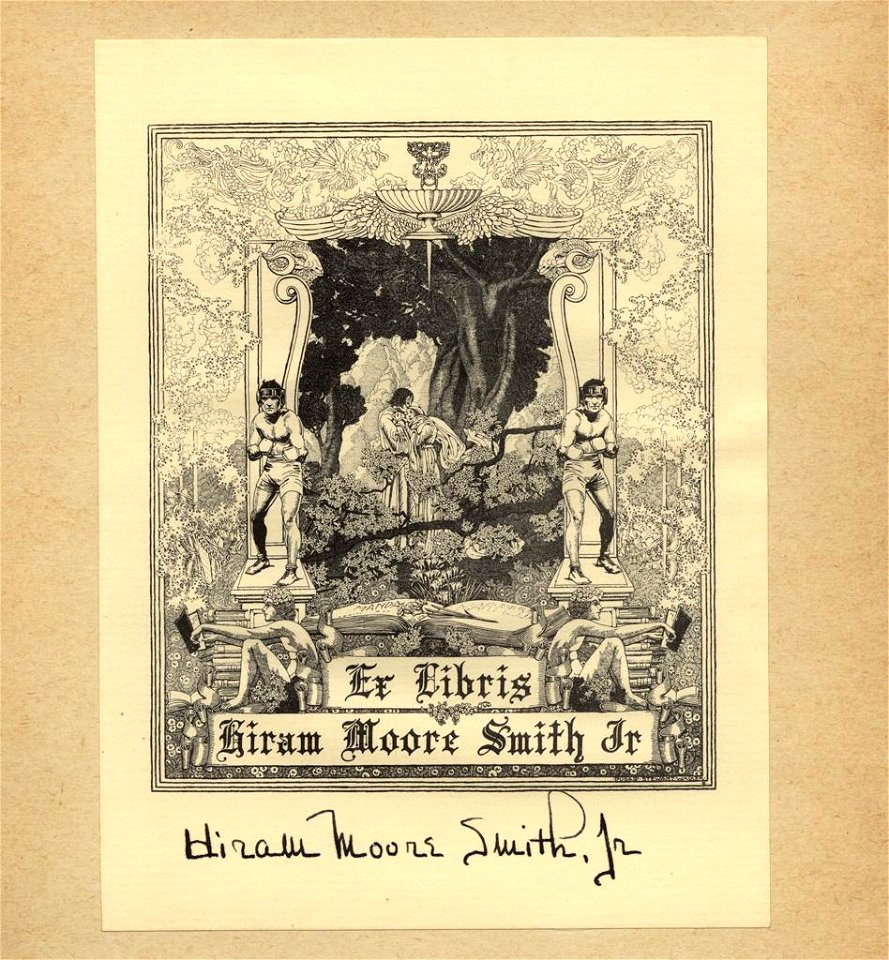 Ex Libris
Hiram Moore Smith Jr
Hiram Moore Smith, Jr